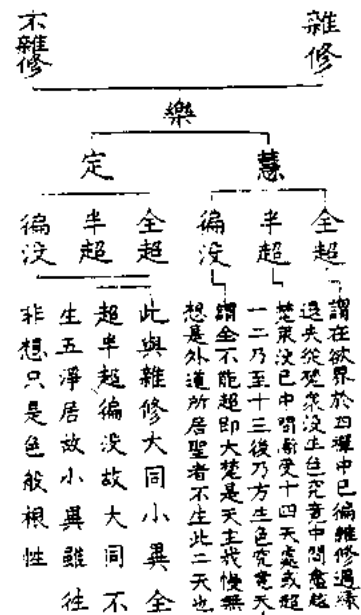 雜修
不雜修
樂
慧
定
全超
半超
徧没
全超
半超
徧没
謂在欲界於四禪中已徧雜修遇緣
退失從梵衆没生色究竟中間盡越
梵衆没已中間漸受十四天處或超
一二乃至十三後乃方生色究竟天
謂全不能超即大梵是天主我慢無
想是外道所居聖者不生此二天也
此與雜修大同小異全
超半超徧没故大同不
生五淨居故小異雖徃
非想只是色般根性